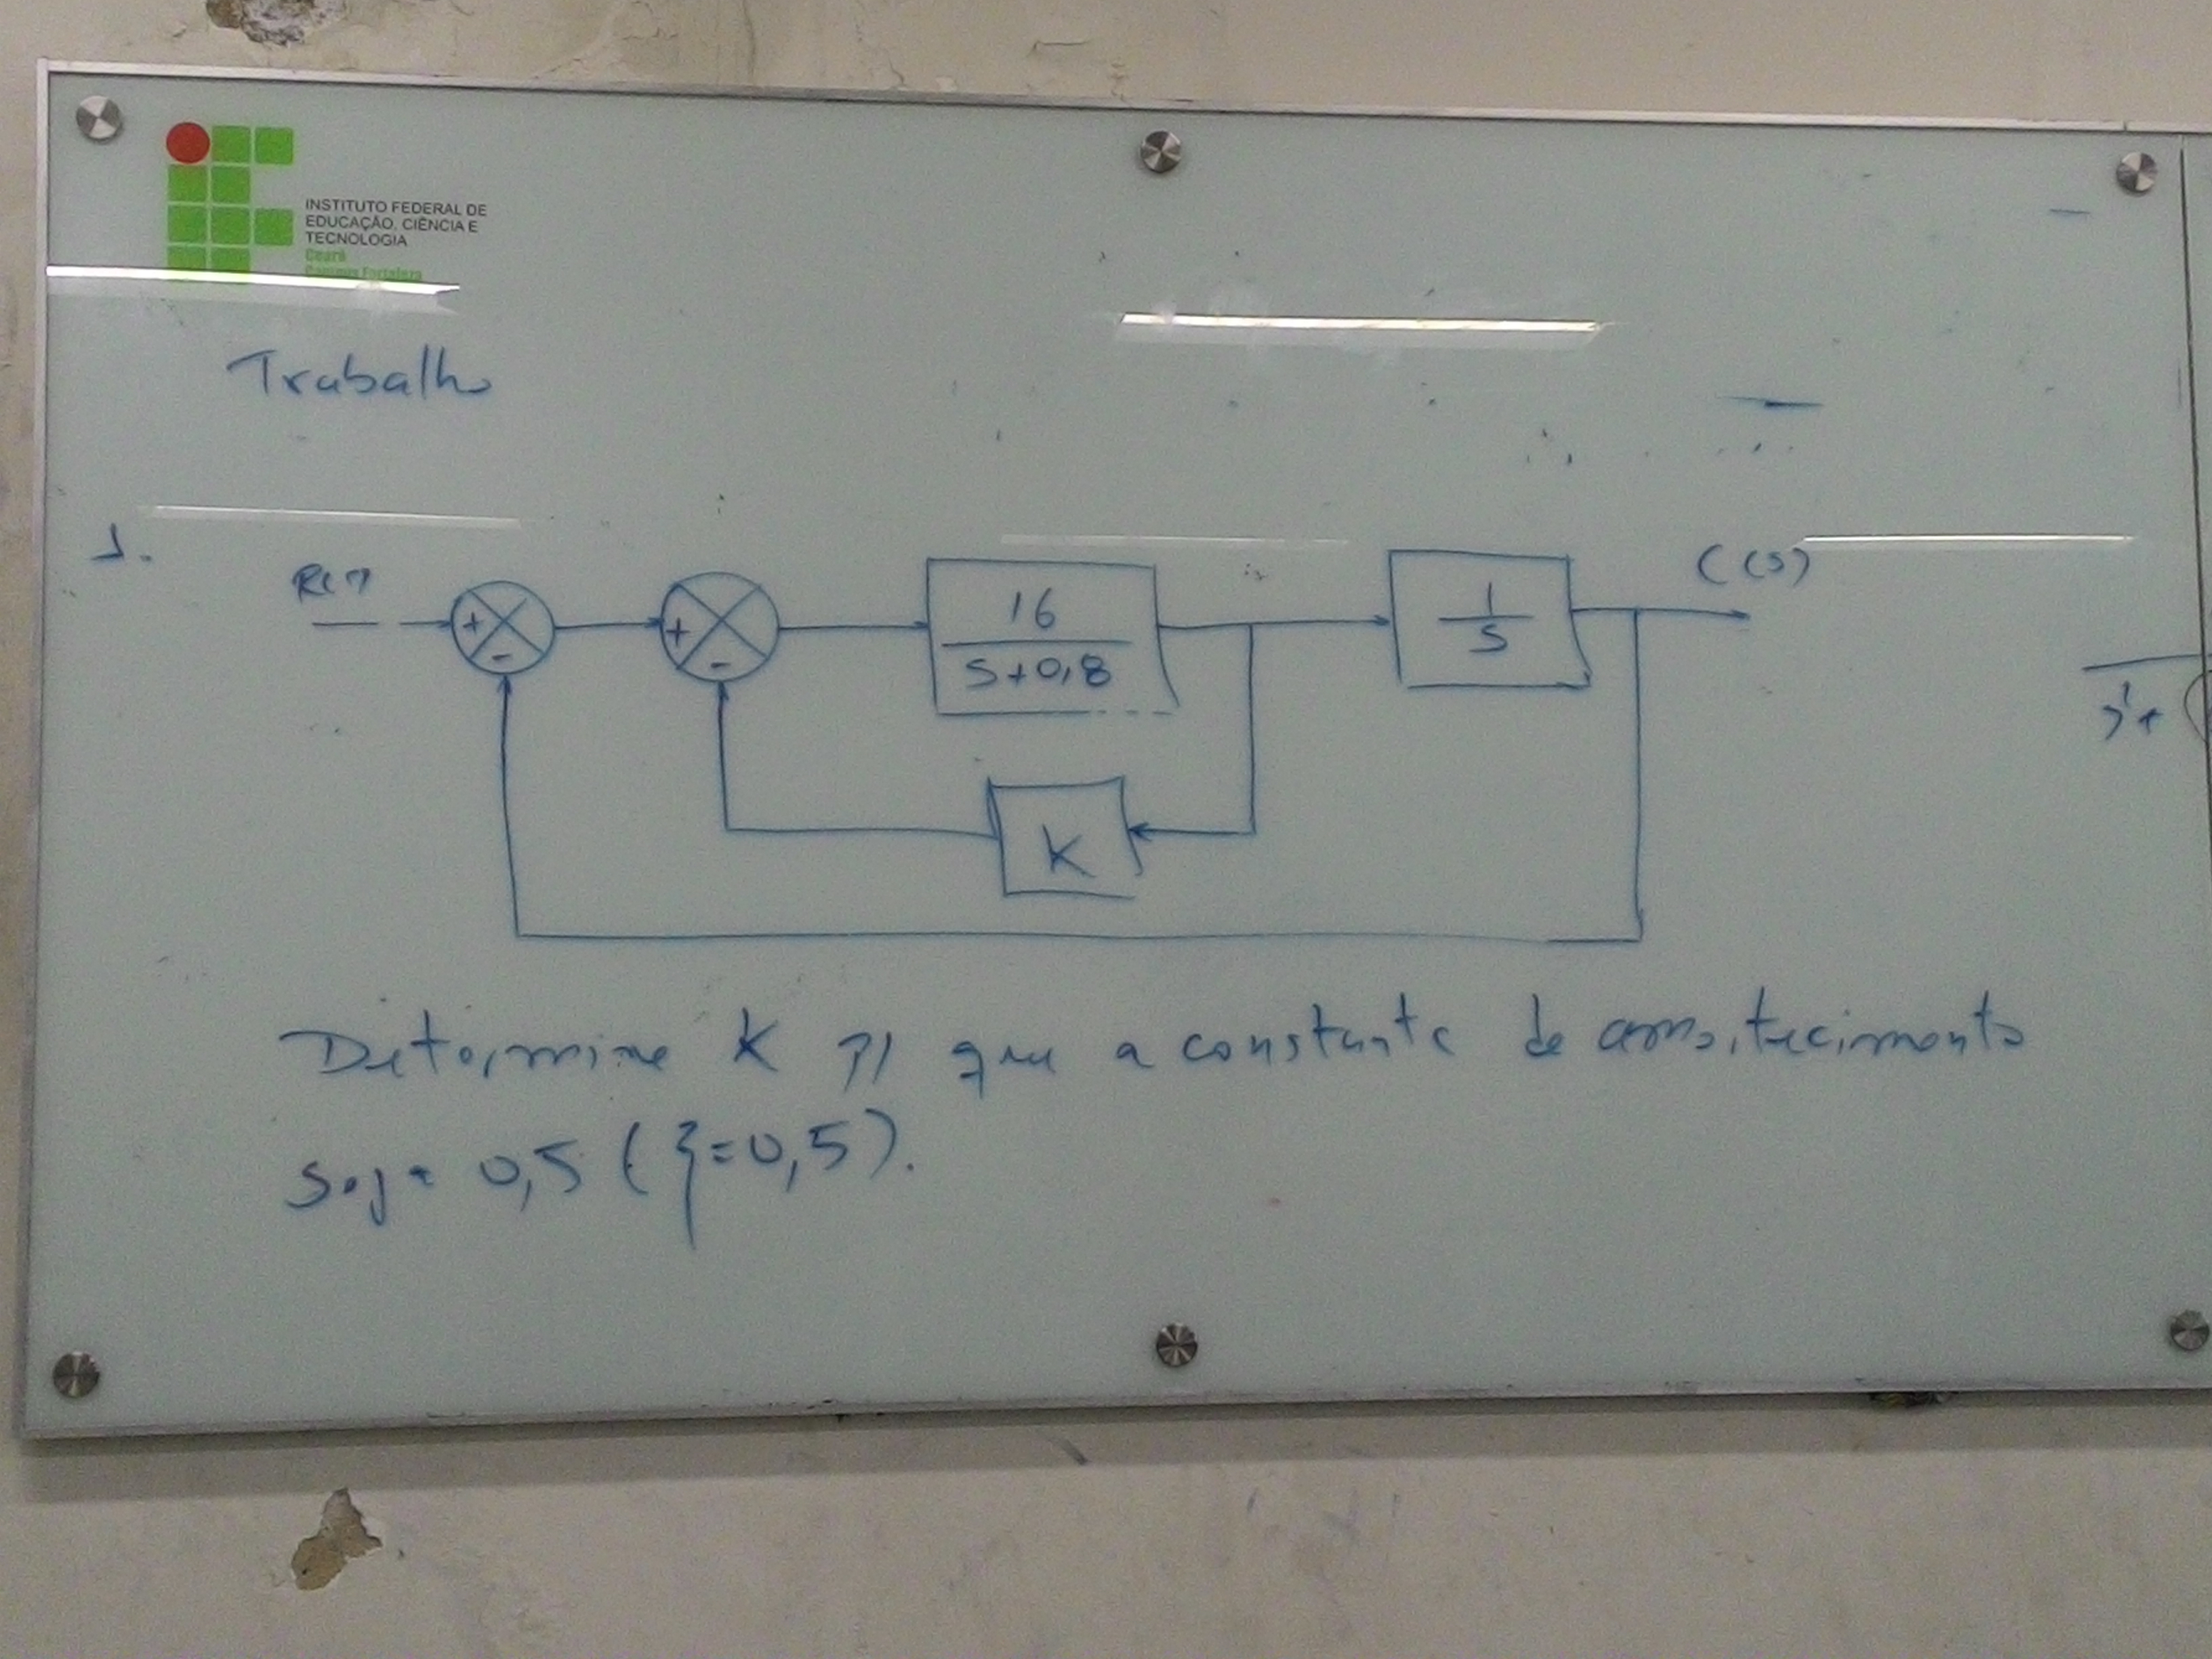 INSTITUTO FEDERAL DE
EDUCAÇÃO, CIÊNCIA E
TECNOLOGIA
Ceará
Campus Fortaleza
Trabalho
1.
R(s)
C(s)
+
-
+
-
16
s+0,8
1
s
K
Determine K p/ que a constante de amortecimento
seja 0,5 (ξ=0,5).